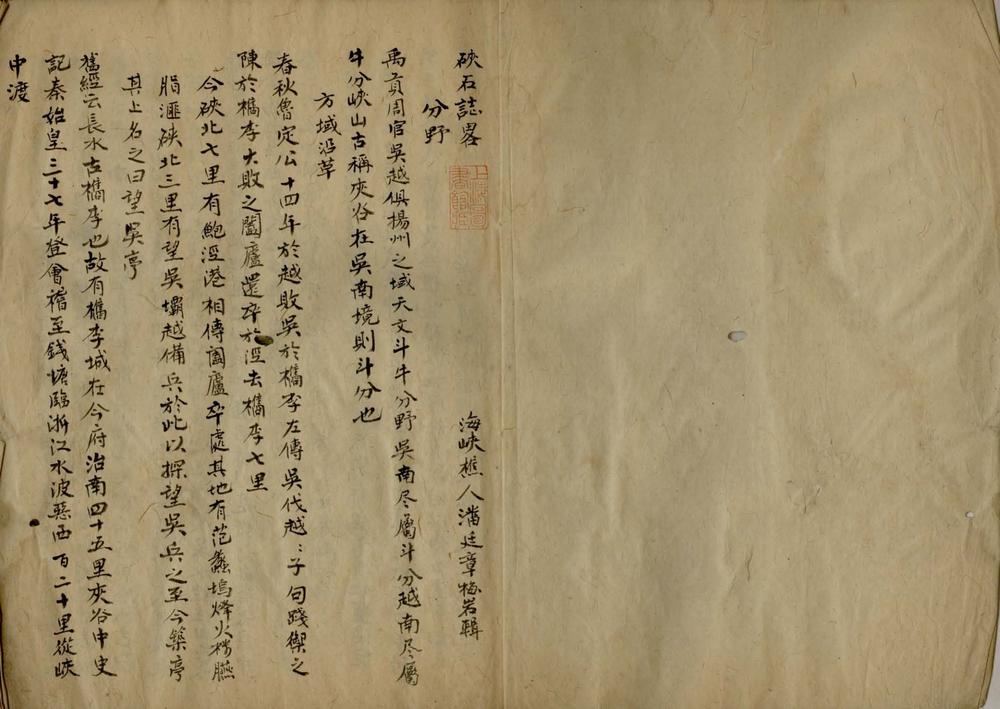 硤石誌畧
海峽樵人潘廷章梅岩輯
分野
禹貢周官吳越俱揚州之域天文斗牛分野吳南尽屬斗分越南尽屬
牛分峽山古稱夾谷在吳南境則斗分也
方域沿革
春秋魯定公十四年於越敗吳於檇李左傳吳伐越〻子句踐禦之
陳於檇李大敗之闔廬還卒於涇去檇李七里
今硤北七里有鮑涇港相傳闔廬卒處其地有范蠡塢烽火樓臙
脂滙硤北三里有望吳壩越備兵於此以探望吳兵之至今築亭
其上名之曰望吳亭
舊經云長水古檇李也故有檇李城在今府治南四十五里夾谷中史
記秦始皇三十七年登會稽至錢塘臨浙江水波惡西百二十里從峽
中渡